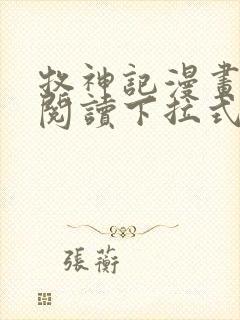 牧神記漫畫
閱讀下拉式
張蘅